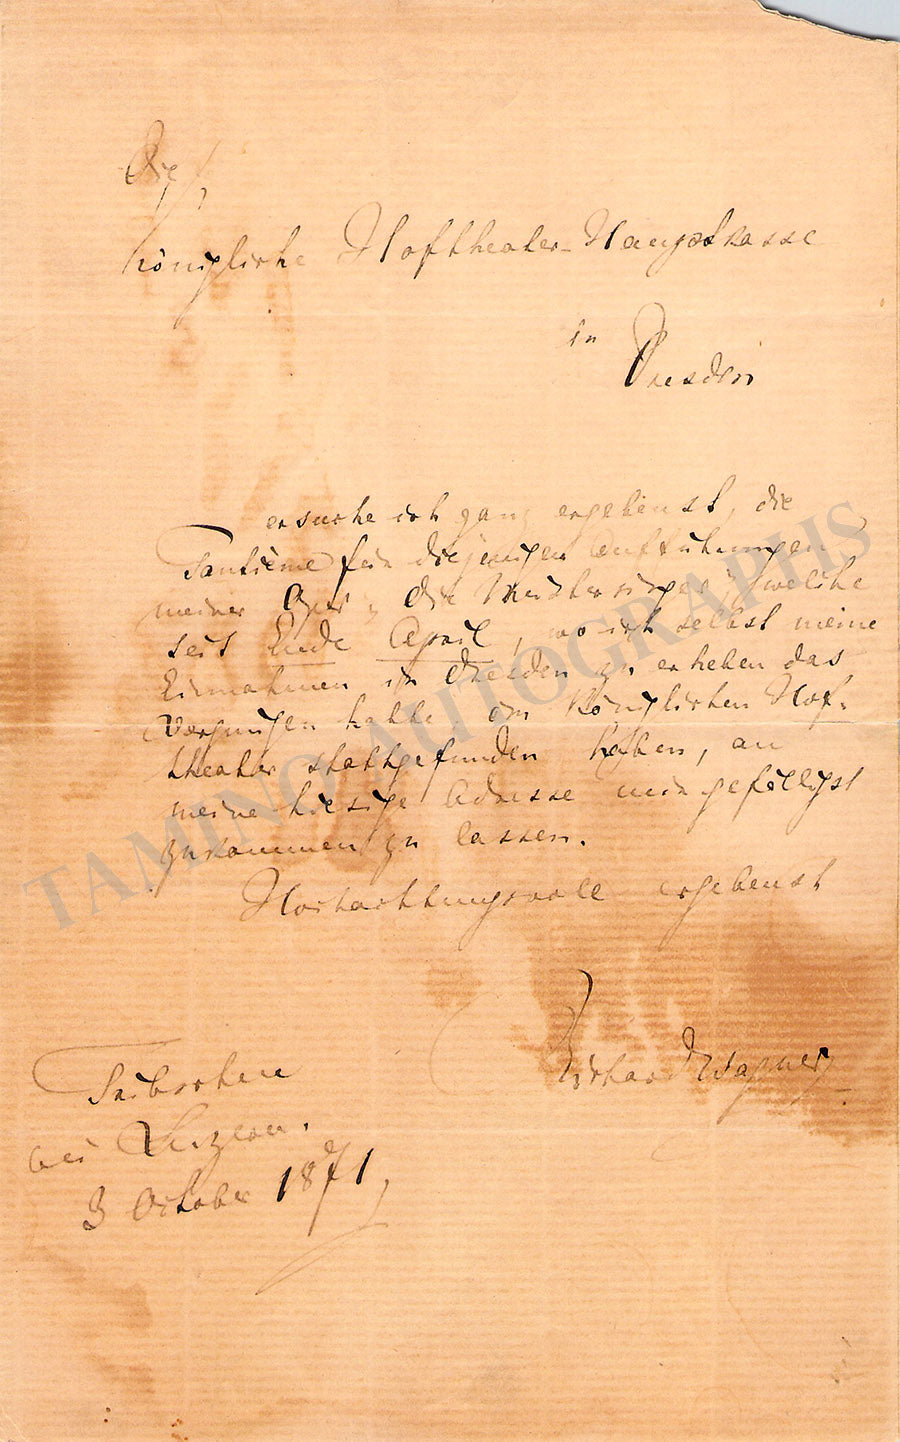 Die
königliche Hoftheater-Hauptkasse
in
Dresden
ersuche ich ganz ergebenst, die
Tantième für diejenigen Aufführungen
meiner Oper „Die Meistersinger“, welche
seit Ende April, wo ich selbst meine
Einnahmen in Dresden zu erheben das
Vergnügen hatte, am Königlichen Hof-
theater stattgefunden haben, an
meine hiesige Adresse mir gefälligst
zukommen zu lassen.
Hochachtungsvoll ergebenst
Richard Wagner
Tribschen
bei Luzern.
3 October 1871
TAMINO AUTOGRAPHS